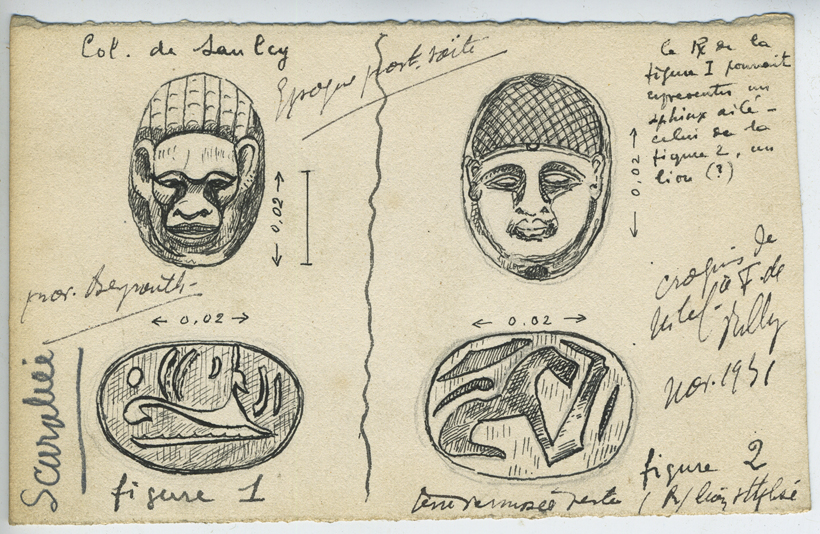 Col. de Saulcy
Epoque post. saïte
le R/ de la
figure I pourrait
représenter un
sphinx ailé -
celui de la
figure 2, un
lion (?)
0,02
0,02
prov. Beyrouth -
croquis de
de
nov. 1951
0.02
0.02
Scarabée
figure 1
figure 2
(R/ lion stylisé